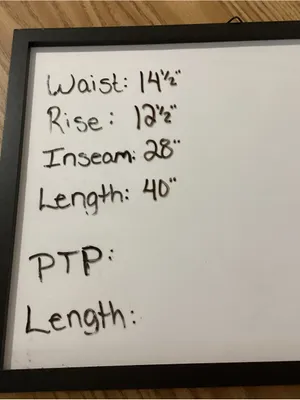 Waist: 14½"
Rise: 12½"
Inseam: 28"
Length: 40"
PTP:
Length: